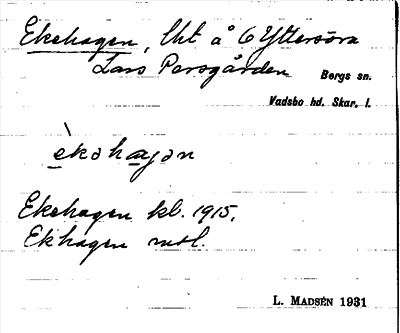 Ekehagen, lht å 6 Yttersöra
Lars Persgården Bergs sn.
Vadsbo hd. Skar. l.
èkəhaǥən
Ekehagen kb. 1915.
Ekhagen msl.
L. MADSÉN 1931